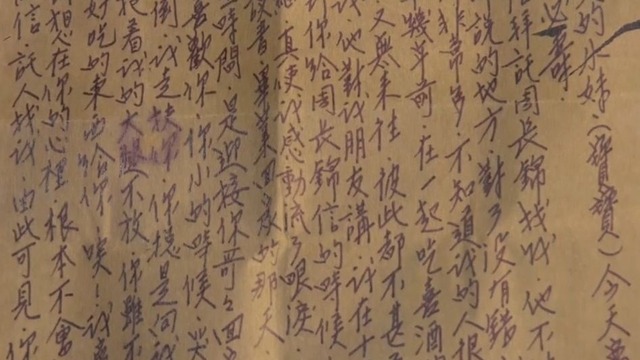 的小妹:(寶寶)今天
拜託周長錦找我,他不
說的地方,對了沒有錯
非常多,不知道我的人很
幾年前,在一起吃喜酒
又無來往,彼此都不甚
他對我朋友講,我在十
到你給周長錦信的時候
真使我感動流了眼淚
畢業回家的那天
時間,是迎接你哥哥回
喜歡你,你小的時候,哭
倒,我走扶你,你總是問我
着我的大腿不放,你雖不
好吃的東西給你,唉!我
想在你的心裡,根本不會
信,託人找我,由此可見,你